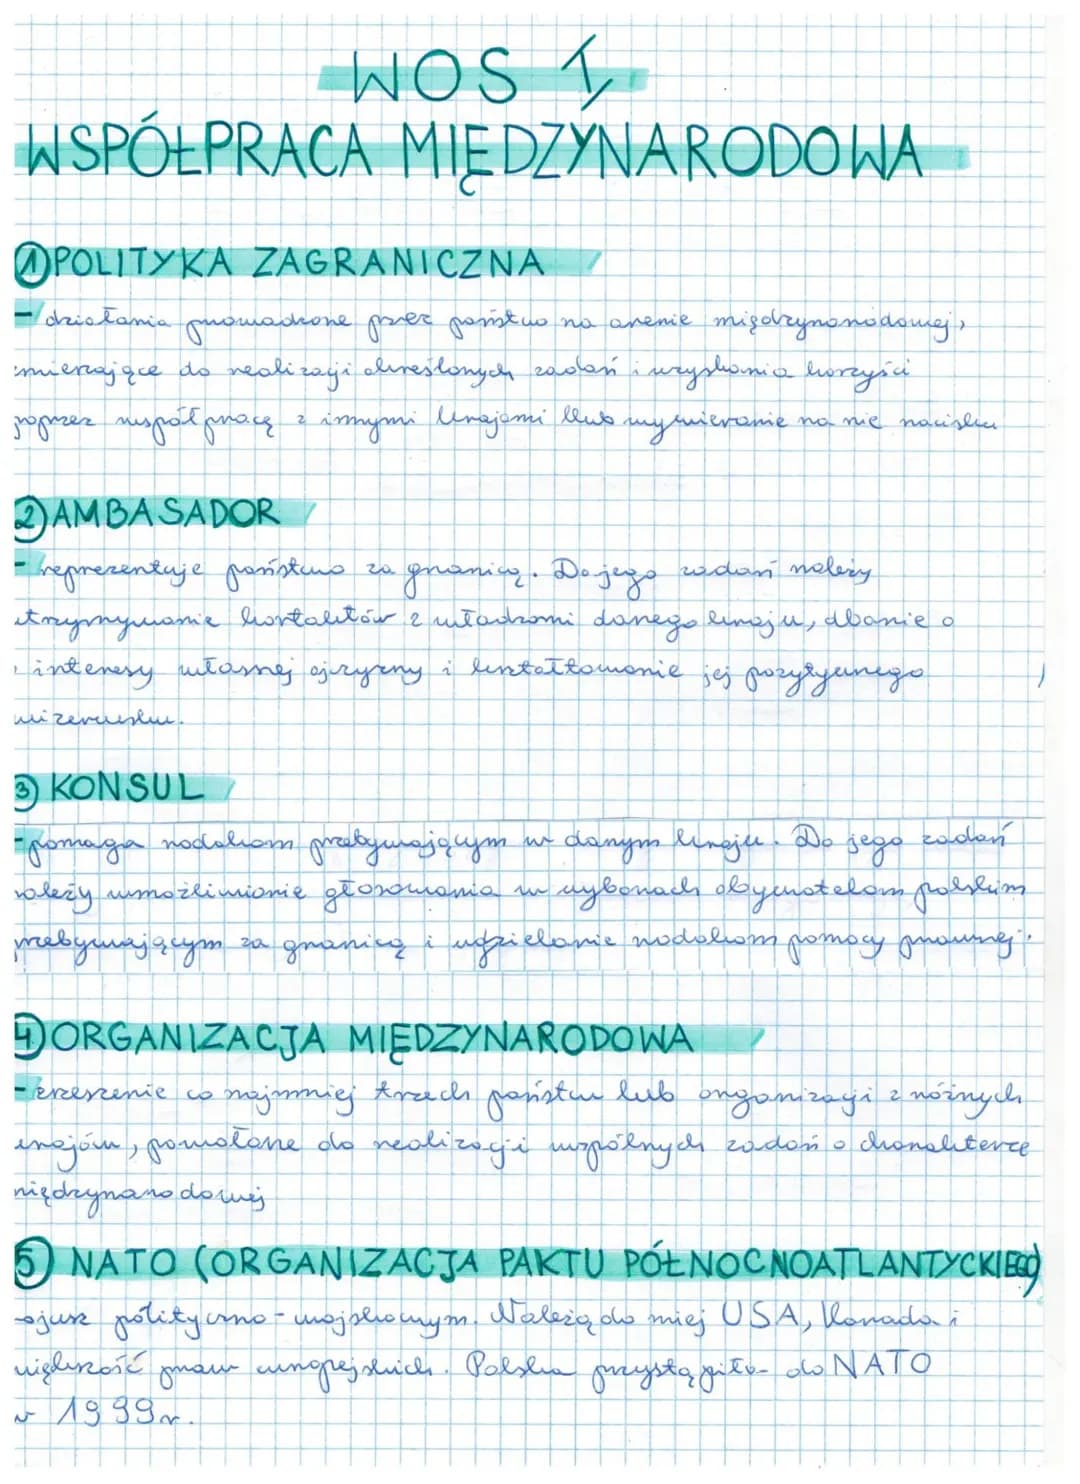 WOS 1
WSPÓŁPRACA MIĘDZYNARODOWA
① POLITYKA ZAGRANICZNA
- działania prowadzone przez państwo na arenie międzynarodowej,
zmierzające do realizacji określonych zadań i uzyskania korzyści
poprzez współpracę z innymi krajami lub wywieranie na nie nacisku
② AMBASADOR
- reprezentuje państwo za granicą. Do jego zadań należy
utrzymywanie kontaktów z władzami danego kraju, dbanie o
interesy własnej ojczyzny i kształtowanie jej pozytywnego
wizerunku.
③ KONSUL
- pomaga rodakom przebywającym w danym kraju. Do jego zadań
należy umożliwianie głosowania w wyborach obywatelom polskim
przebywającym za granicą i udzielanie rodakom pomocy prawnej.
④ ORGANIZACJA MIĘDZYNARODOWA
- zrzeszenie co najmniej trzech państw lub organizacji z różnych
krajów, powołane do realizacji wspólnych zadań o charakterze
międzynarodowej
⑤ NATO (ORGANIZACJA PAKTU PÓŁNOCNOATLANTYCKIEGO)
sojusz polityczno-wojskowym. Należą do niej USA, Kanada i
większość praw europejskich. Polska przystąpiło do NATO
w 1999r.